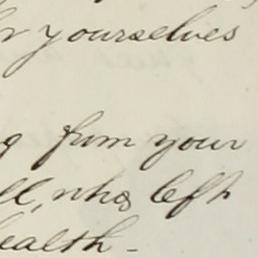 r yourselves
g from your
ll, who left
ealth -